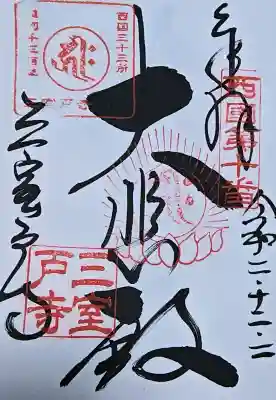 奉拝
西国第十番
令和二・十二・二
西国三十三所
大悲殿
三室戸寺
三室戸寺